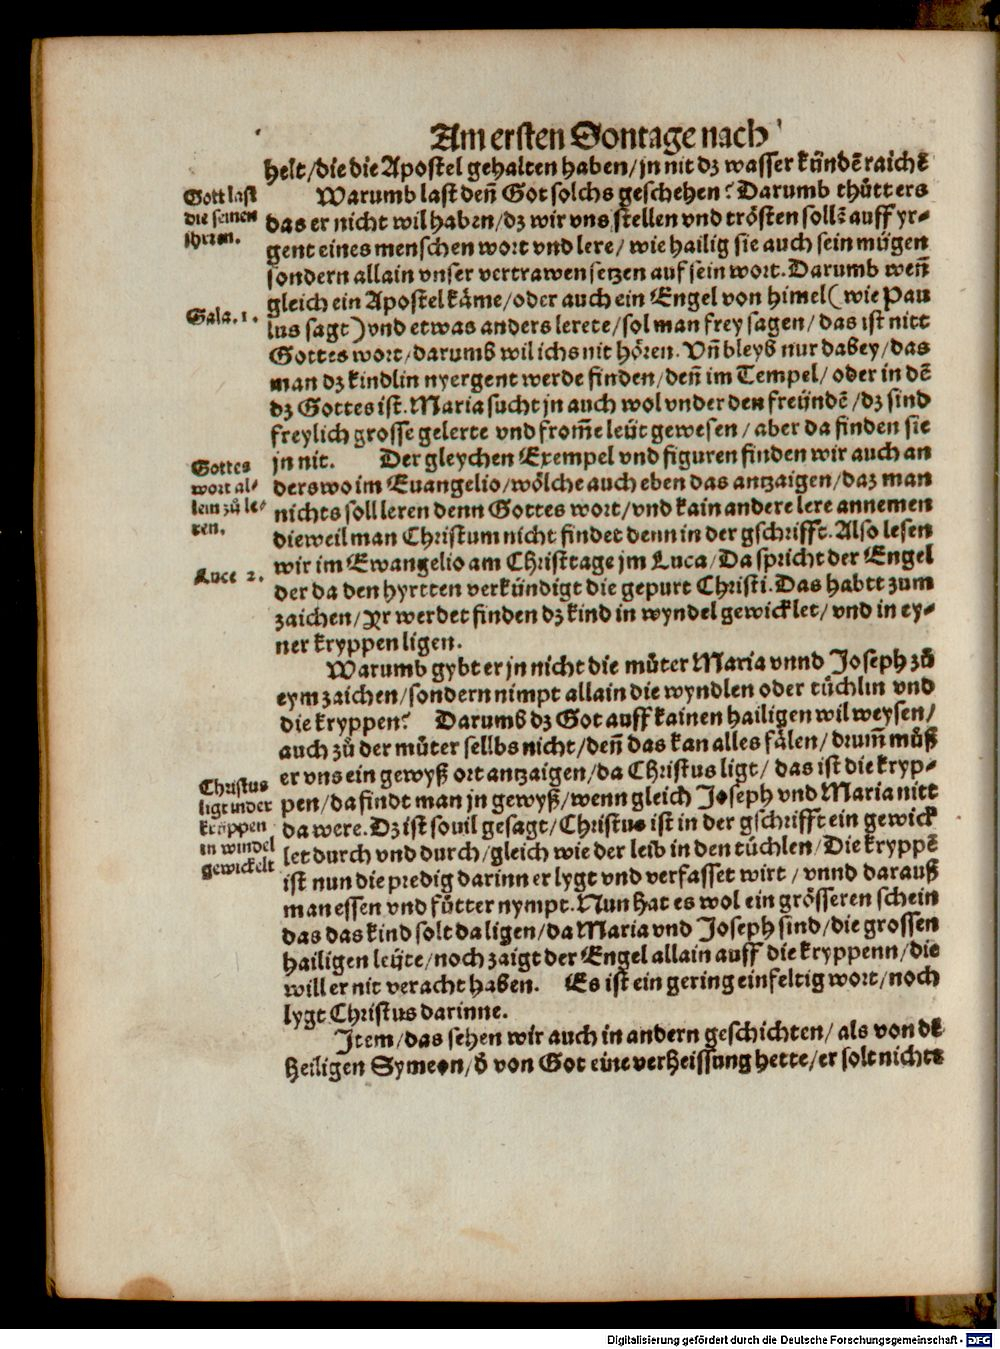 Am ersten Sontage nach
helt/die die Apostel gehalten haben/jn nit dz wasser kündẽ raichẽ
Gott last
die seinen
jhrren.
Warumb last deñ Got solchs geschehen? Darumb thütt ers
das er nicht wil haben/dz wir vns stellen vnd trösten sollẽ auff yr-
gent eines menschen wort vnd lere/ wie hailig sie auch sein mügen
sondern allain vnser vertrawen setzen auf sein wort. Darumb weñ
Gala. 1.
gleich ein Apostel käme/oder auch ein Engel von himel(wie Pau
lus sagt)vnd etwas anders lerete/sol man frey sagen/das ist nitt
Gottes wort/darumb wil ichs nit hören. Vñ bleyb nur dabey/das
man dz kindlin nyergent werde finden/deñ im Tempel/ oder in dẽ
dz Gottes ist. Maria sucht jn auch wol vnder den freündẽ/dz sind
freylich grosse gelerte vnd from̃e leüt gewesen/aber da finden sie
Gottes
wort al-
lein zů le-
ren.
jn nit. Der gleychen Exempel vnd figuren finden wir auch an
derswo im Euangelio/wölche auch eben das antzaigen/daz man
nichts soll leren denn Gottes wort/vnd kain andere lere annemen
dieweil man Christum nicht findet denn in der gschrifft. Also lesen
Luce 2.
wir im Ewangelio am Christtage jm Luca/Da spricht der Engel
der da den hyrtten verkündigt die gepurt Christi. Das habtt zum
zaichen/Yr werdet finden dz kind in wyndel gewicklet/vnd in ey-
ner kryppen ligen.
Warumb gybt er jn nicht die müter Maria vnnd Joseph zů
eym zaichen/sondern nimpt allain die wyndlen oder tüchlin vnd
die kryppen? Darumb dz Got auff kainen hailigen wil weysen/
auch zů der müter sellbs nicht/deñ das kan alles fälen/drum̃ můß
Christus
ligt in der
krippen
in windel
gewickelt
er vns ein gewyß ort antzaigen/da Christus ligt/ das ist die kryp-
pen/da findt man jn gewyß/wenn gleich Joseph vnd Maria nitt
da were. Dz ist souil gesagt/Christus ist in der gschrifft ein gewick
let durch vnd durch/gleich wie der leib in den tüchlen/Die kryppẽ
ist nun die predig darinn er lygt vnd verfasset wirt/vnnd darauß
man essen vnd fütter nympt. Nun hat es wol ein grösseren schein
das das kind solt da ligen/da Maria vnd Joseph sind/die grossen
hailigen leüte/noch zaigt der Engel allain auff die kryppenn/die
will er nit veracht haben. Es ist ein gering einfeltig wort/noch
lygt Christus darinne.
Jtem/das sehen wir auch in andern geschichten/als von dẽ
Heiligen Symeon/ð von Got eine verheissung hette/er solt nichtt
Digitalisierung gefördert durch die Deutsche Forschungsgemeinschaft - DFG